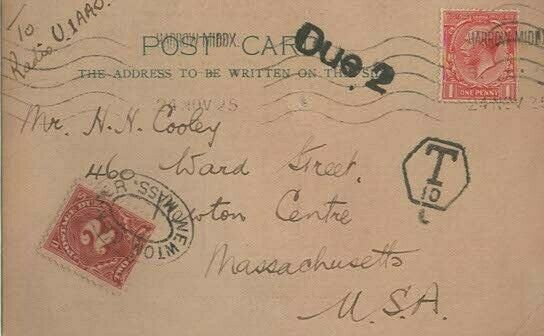 To
Radio U.1AAO.
HARROW MIDDX.
POST CARD
THE ADDRESS TO BE WRITTEN ON THIS SIDE
Due 2
24 NOV 25
HARROW MIDDX
24 NOV 25
ONE PENNY
1
1
Mr. H. N. Cooley
460 Ward Street.
Newton Centre
Massachusetts
U.S.A.
T
10
NEWTON
MASS.
2